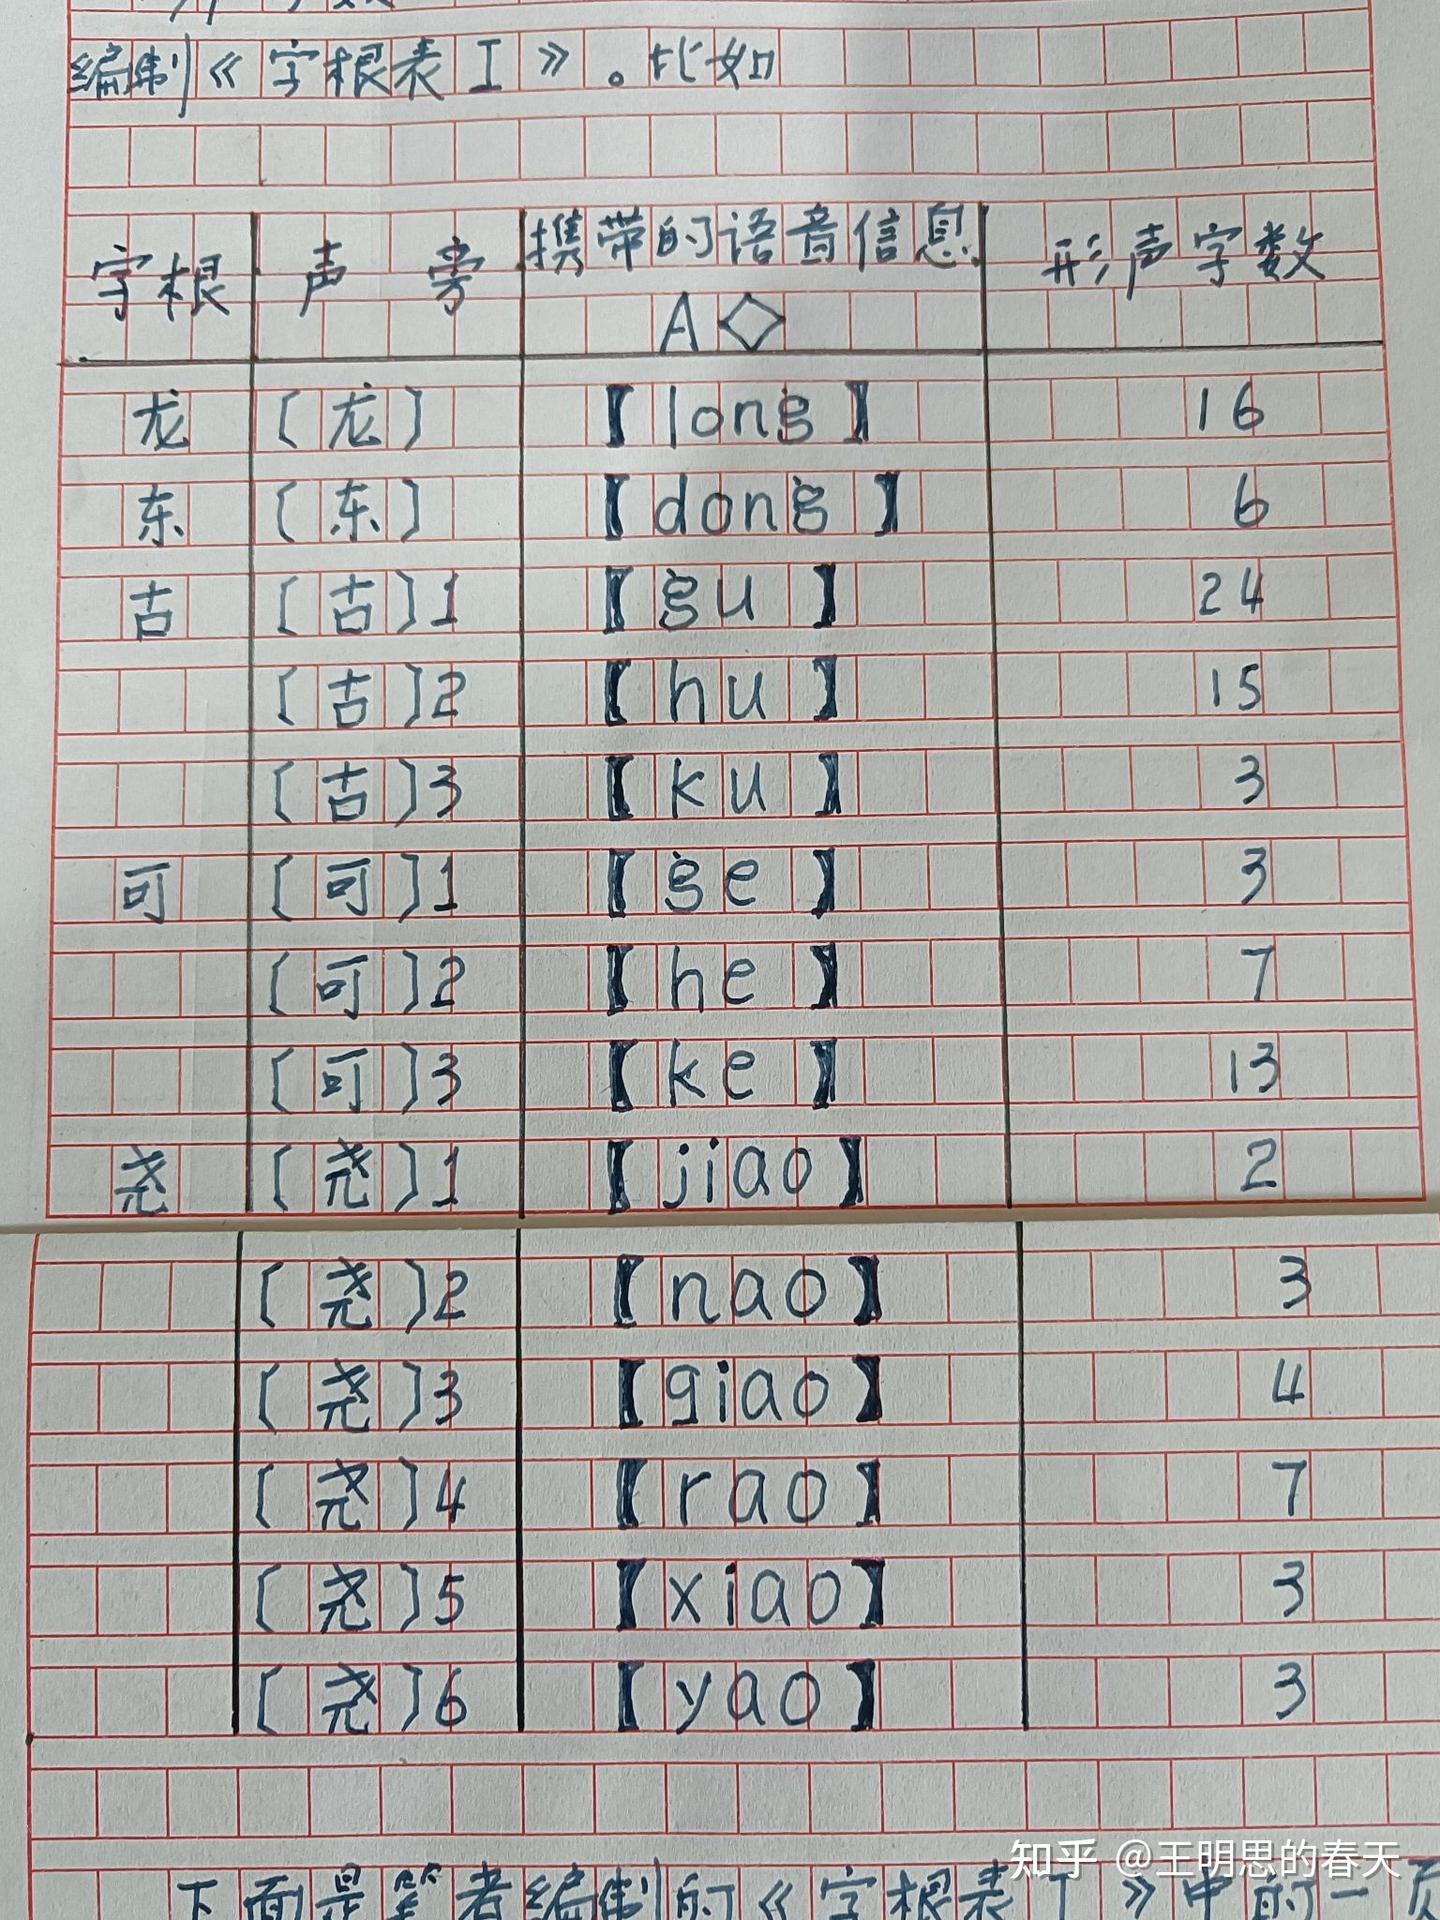 编制《字根表工》。比如
字根 声旁 携带的语音信息 A◇ 形声字数
龙 〔龙〕 【long】 16
东 〔东〕 【dong】 6
古 〔古〕1 【gu】 24
〔古〕2 【hu】 15
〔古〕3 【ku】 3
可 〔可〕1 【ge】 3
〔可〕2 【he】 7
〔可〕3 【ke】 13
尧 〔尧〕1 【jiao】 2
〔尧〕2 【nao】 3
〔尧〕3 【qiao】 4
〔尧〕4 【rao】 7
〔尧〕5 【xiao】 3
〔尧〕6 【yao】 3
知乎 @王明思的春天
下面是笔者编制的《字根表工》中的一页